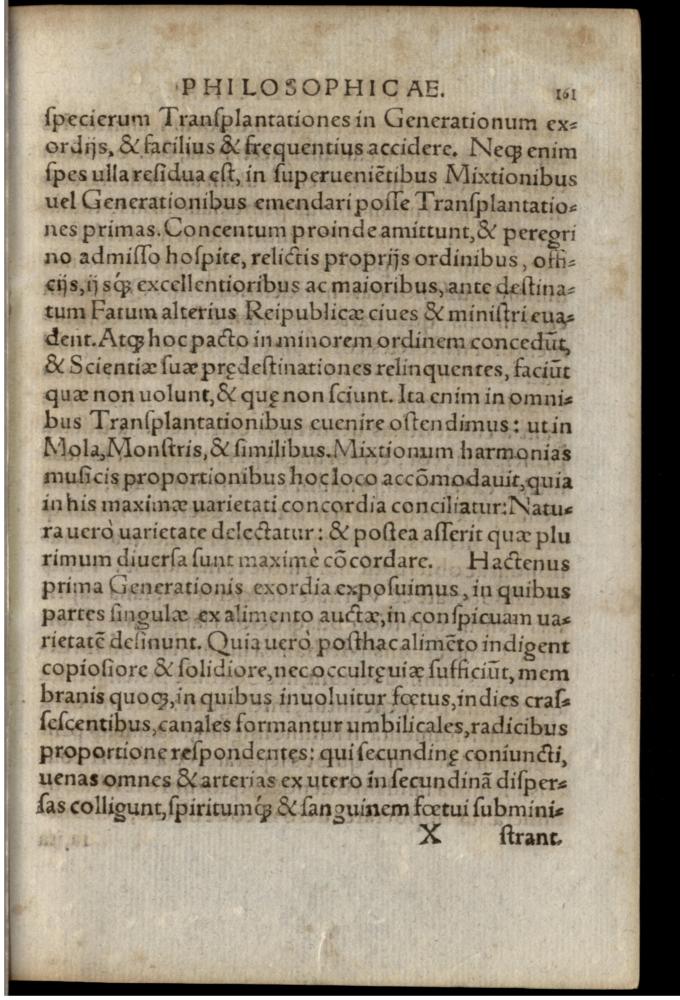 PHILOSOPHICAE. 161
ſpecierum Tranſplantationes in Generationum ex⸗
ordijs, & facilius & frequentius accidere. Neqꝫ enim
ſpes ulla reſidua eſt, in ſuperueniẽtibus Mixtionibus
uel Generationibus emendari poſſe Tranſplantatio⸗
nes primas. Concentum proinde amittunt, & peregri
no admiſſo hoſpite, relictis proprijs ordinibus, offi⸗
cijs, ijsq́ꝫ excellentioribus ac maioribus, ante deſtina⸗
tum Fatum alterius Reipublicæ ciues & miniſtri eua⸗
dent. Atqꝫ hoc pacto in minorem ordinem concedũt,
& Scientiæ ſuæ prędeſtinationes relinquentes, faciũt
quæ non uolunt, & quę non ſciunt. Ita enim in omni⸗
bus Tranſplantationibus euenire oſtendimus: ut in
Mola, Monſtris, & ſimilibus. Mixtionum harmonias
muſicis proportionibus hoc loco accõmodauit, quia
in his maximæ uarietati concordia conciliatur: Natu⸗
ra uerò uarietate delectatur: & poſtea aſſerit quæ plu
rimum diuerſa ſunt maximè cõcordare. Hactenus
prima Generationis exordia expoſuimus, in quibus
partes ſingulæ ex alimento auctæ, in conſpicuam ua⸗
rietatẽ deſinunt. Quia uerò poſthac alimẽto indigent
copioſiore & ſolidiore, nec occultę uiæ ſufficiũt, mem
branis quoqꝫ, in quibus inuoluitur fœtus, indies craſ⸗
ſeſcentibus, canales formantur umbilicales, radicibus
proportione reſpondentes: qui ſecundinę coniuncti,
uenas omnes & arterias ex utero in ſecundinã diſper⸗
ſas colligunt, ſpiritumq́ꝫ & ſanguinem fœtui ſubmini⸗
X ſtrant.